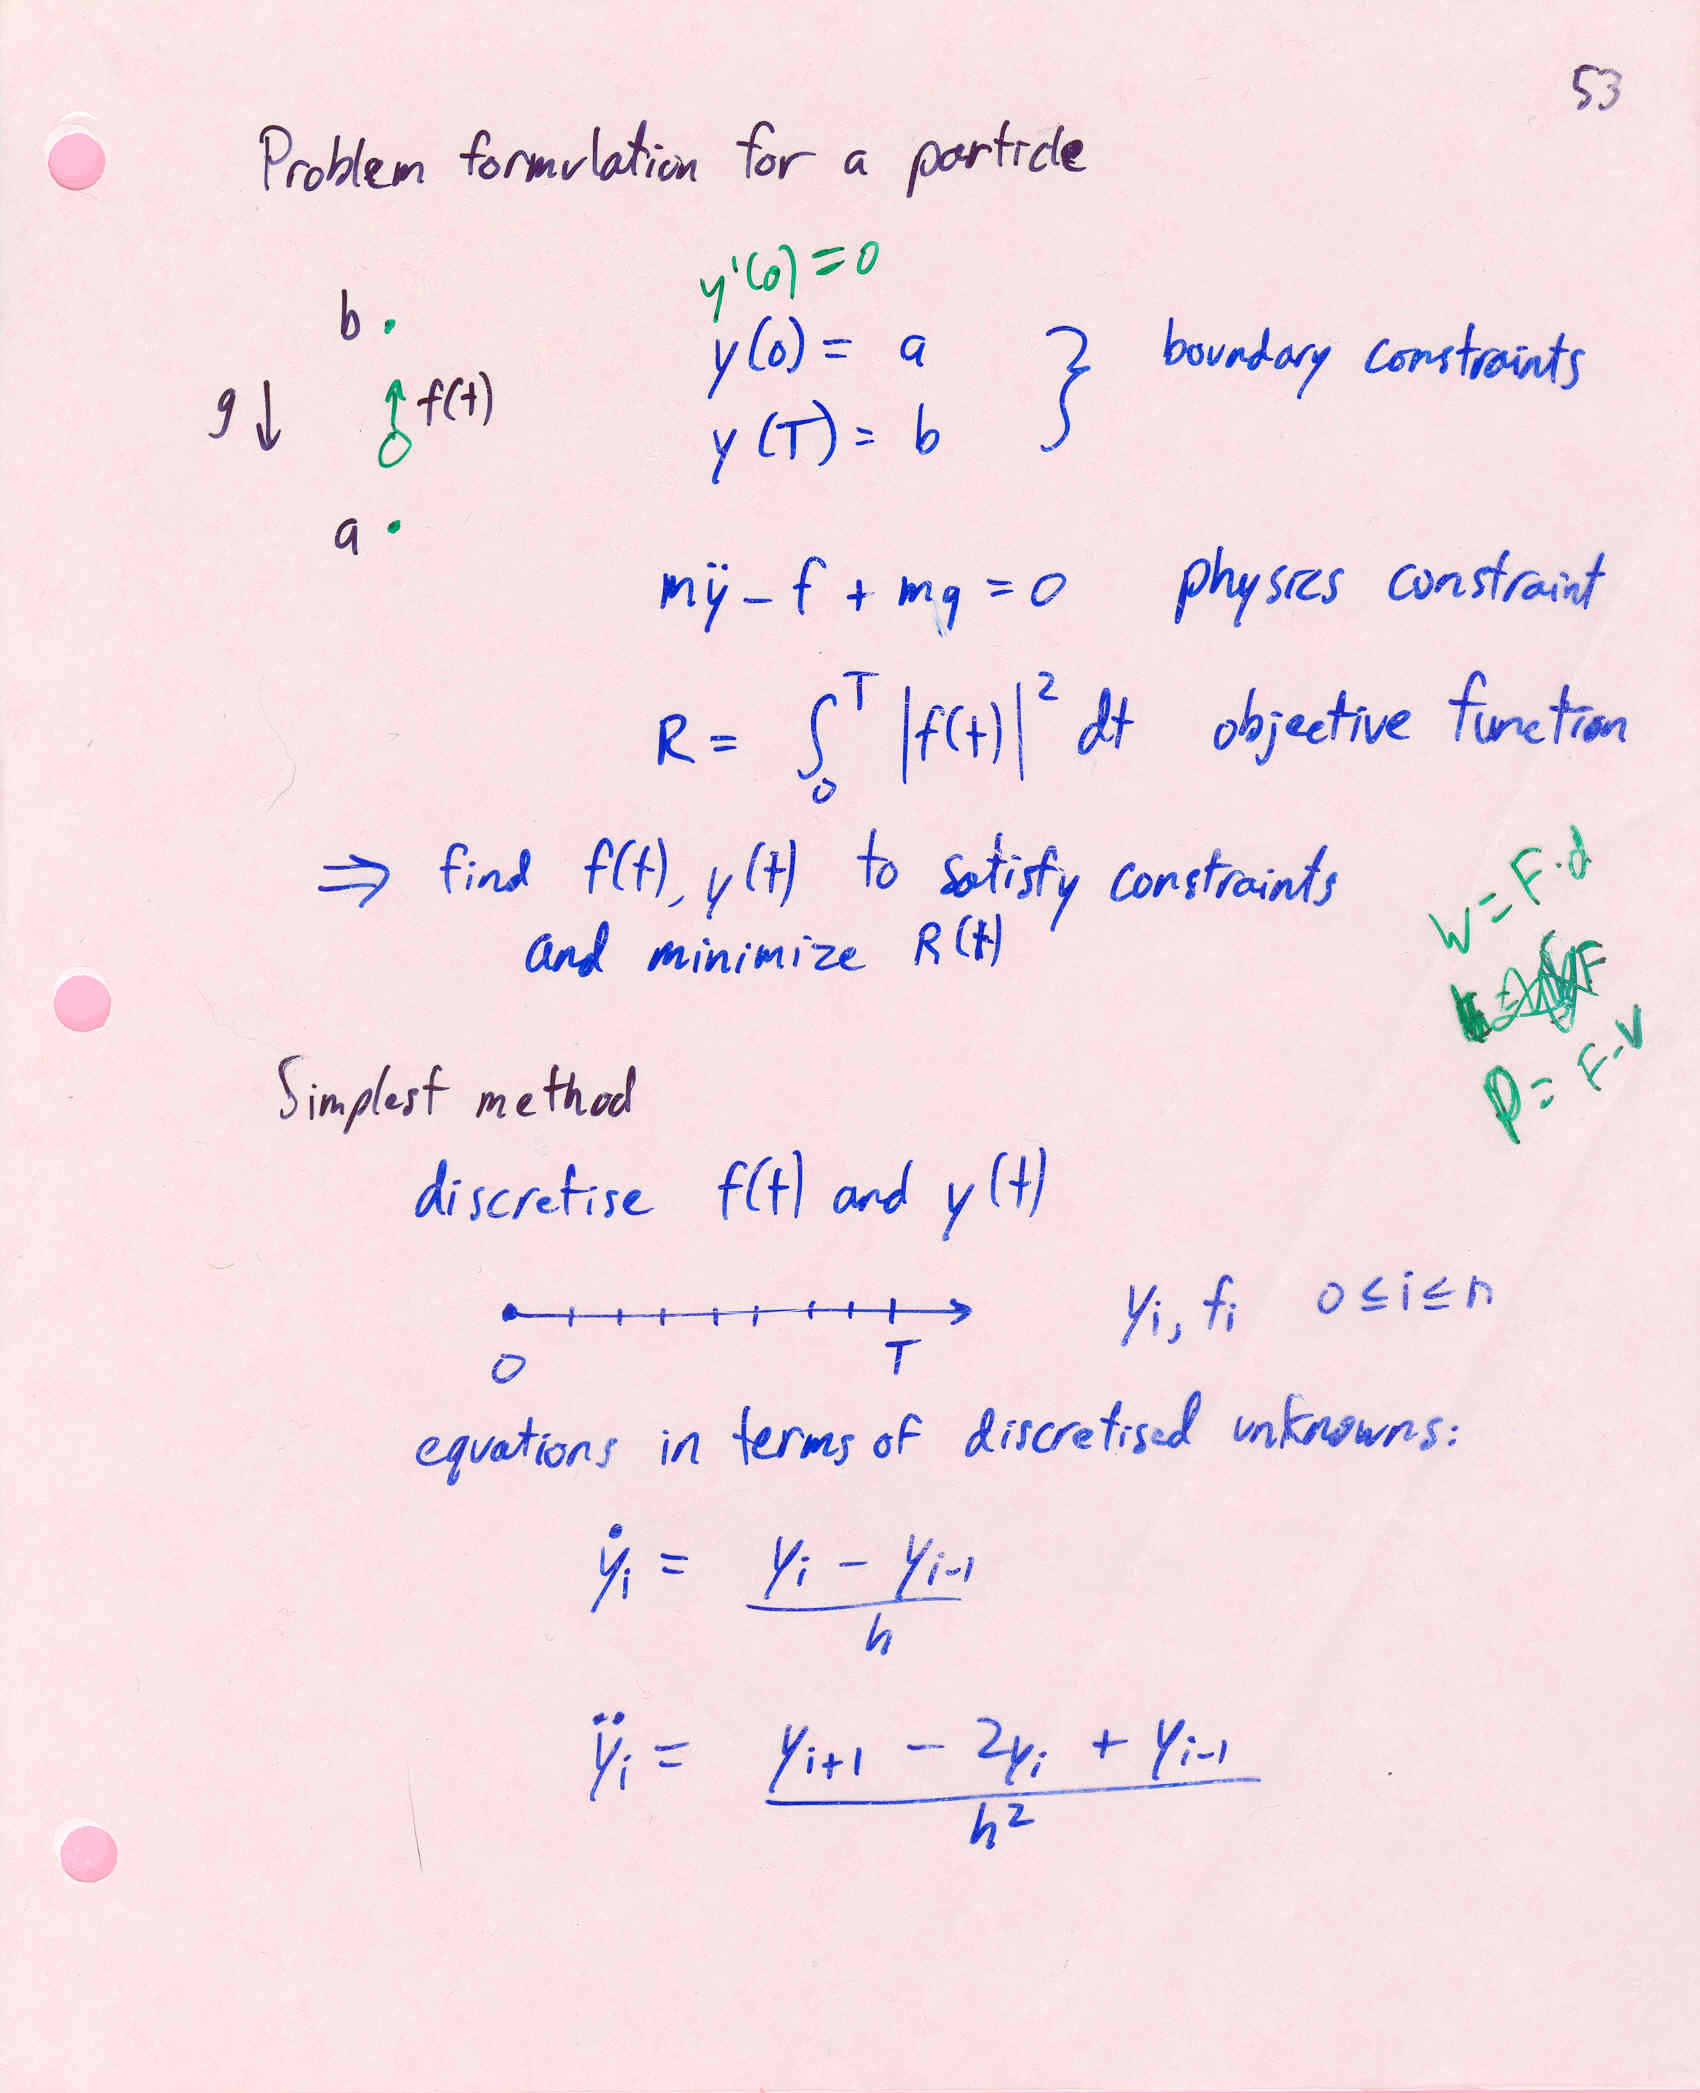 53
Problem formulation for a particle
y'(0) = 0
b
y(0) = a } boundary constraints
g f(t)
y(T) = b
a
mÿ - f + mg = 0 physics constraint
R = ∫₀ᵀ |f(t)|² dt objective function
⇒ find f(t), y(t) to satisfy constraints
and minimize R(t)
W = F·d
F
P = F·v
Simplest method
discretise f(t) and y(t)
yᵢ, fᵢ 0 ≤ i ≤ n
0 T
equations in terms of discretised unknowns:
ẏᵢ = yᵢ - yᵢ₋₁
h
ÿᵢ = yᵢ₊₁ - 2yᵢ + yᵢ₋₁
h²